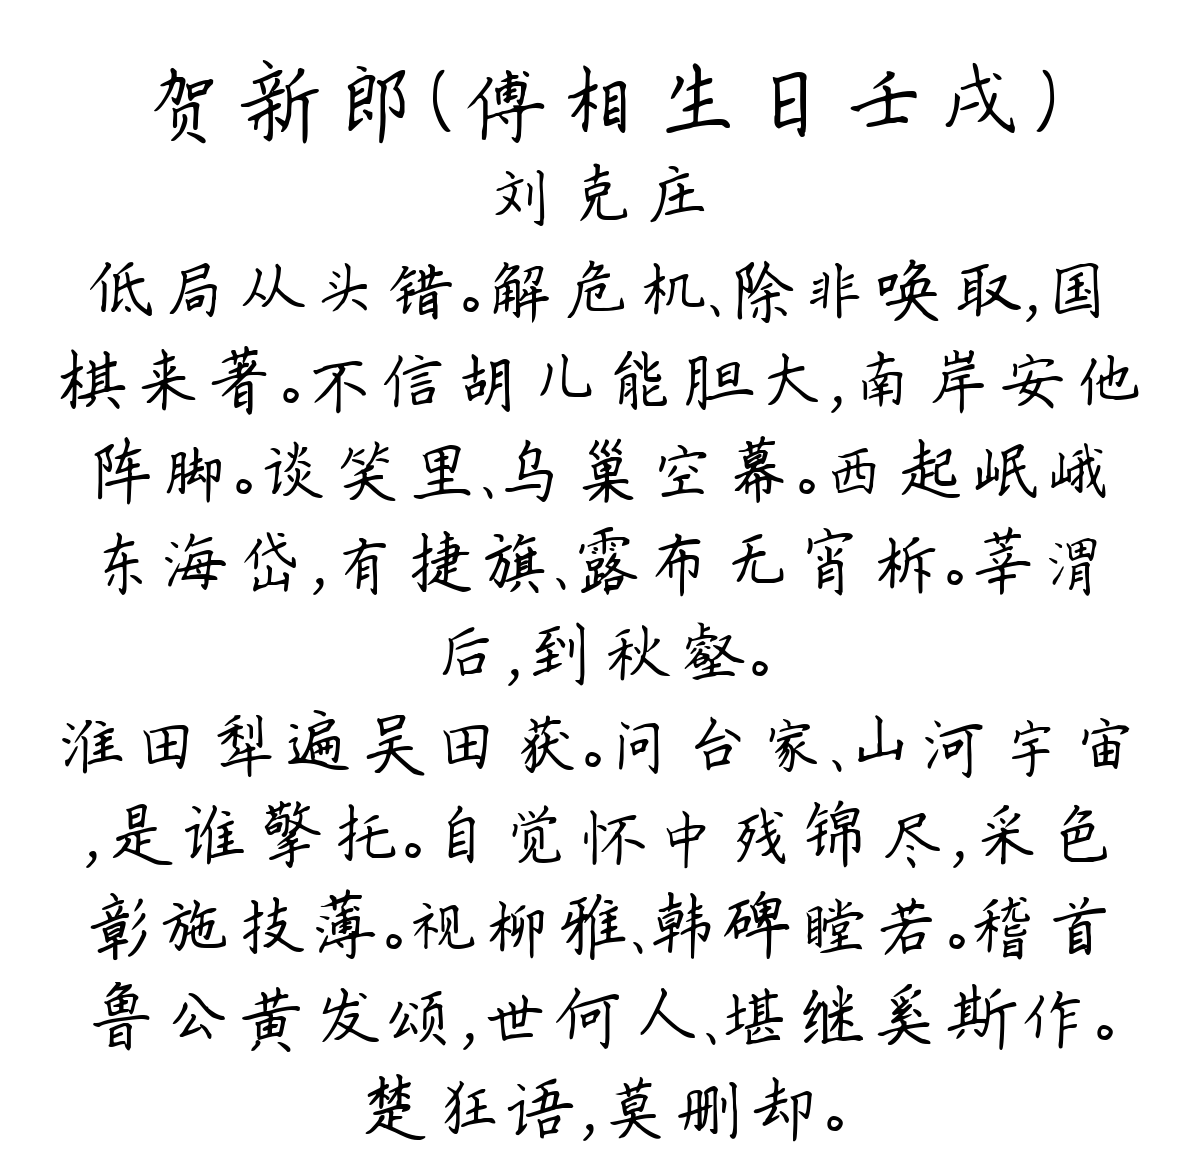 贺新郎(傅相生日壬戌)
刘克庄
低局从头错。解危机、除非唤取,国
棋来著。不信胡儿能胆大,南岸安他
阵脚。谈笑里、乌巢空幕。西起岷峨
东海岱,有捷旗、露布无宵柝。莘渭
后,到秋壑。
淮田犁遍吴田获。问台家、山河宇宙
,是谁擎托。自觉怀中残锦尽,采色
彰施技薄。视柳雅、韩碑瞠若。稽首
鲁公黄发颂,世何人、堪继奚斯作。
楚狂语,莫删却。